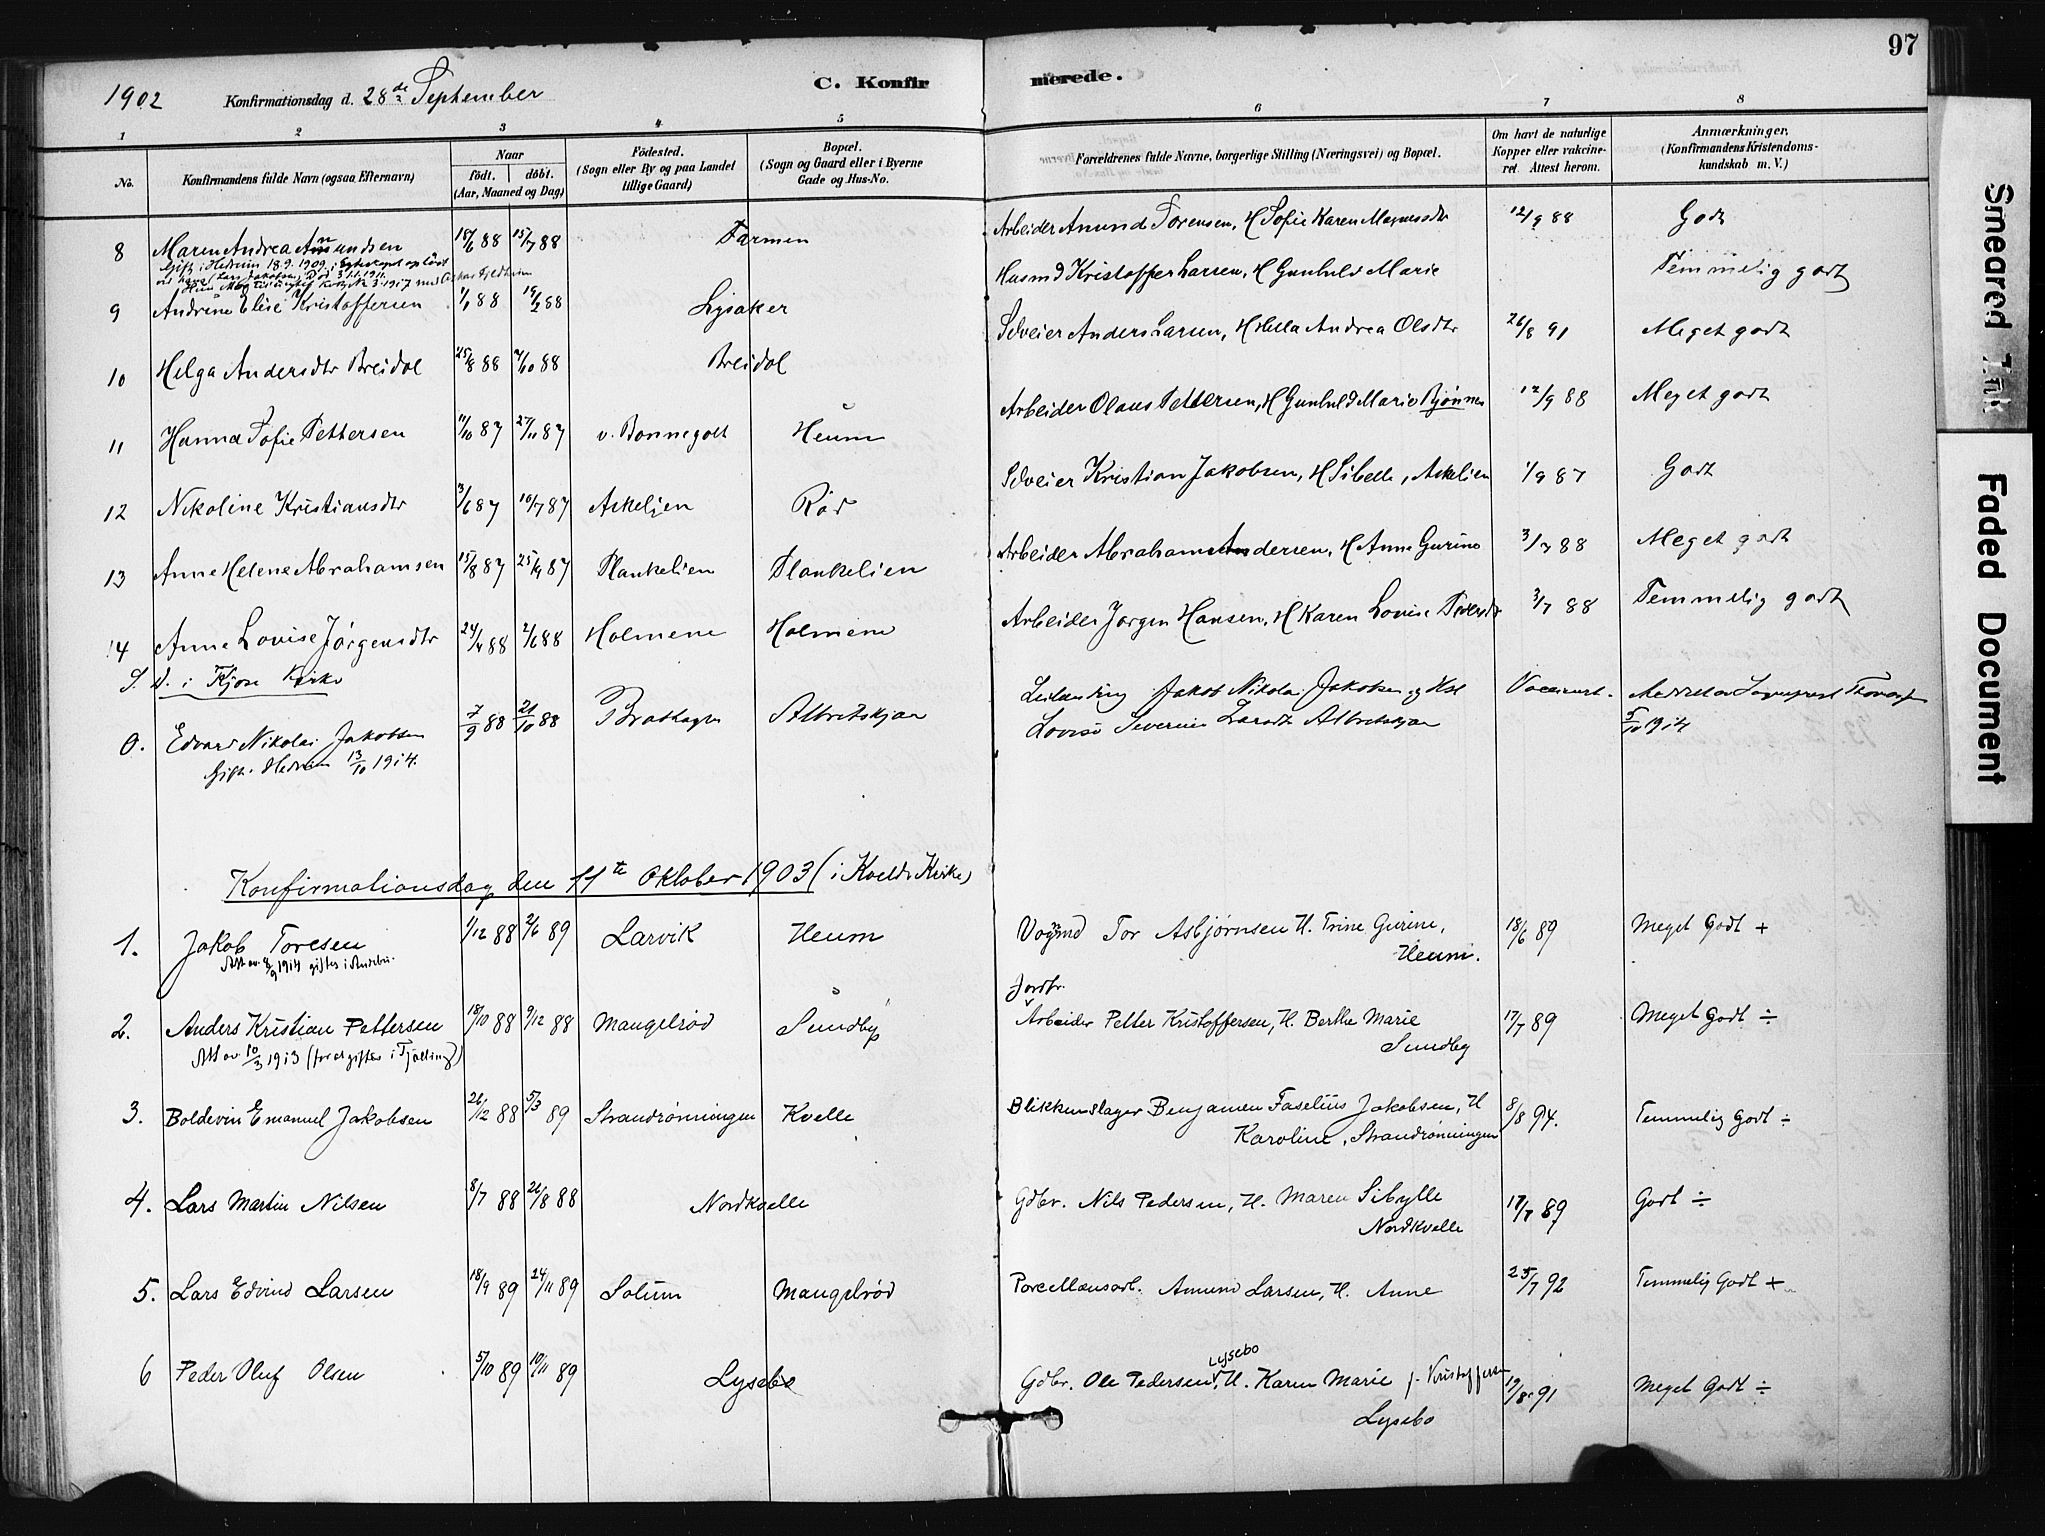 97
1902 Konfirmationsdag d. 28de September
C. Konfirmerede.
1 2 3 4 5 6 7 8
No.
Konfirmandens fulde Navn (ogsaa Efternavn)
Naar
født. døbt.
(Aar, Maaned og Dag)
Födested.
(Sogn eller By og paa Landet
tillige Gaard)
Bopæl.
(Sogn og Gaard eller i Byerne
Gade og Hus-No.
Forældrenes fulde Navne, borgerlige Stilling (Næringsvei) og Bopæl.
Om havt de naturlige
Kopper eller vakcine-
ret. Attest herom.
Anmærkninger.
(Konfirmandens Kristendoms-
kundskab m. V.)
8 Maren Andrea Amundsen 18/6 88 15/7 88 Farmen Arbeider Amund Torensen, H Sofie Karen Magnusdtr 12/9 88 Godt
Gift i Hedrum 18.9.1909
9 Andrine Elise Kristoffersen 1/1 88 19/2 88 Lysaker Husmd Kristoffer Larsen, H Gunhild Marie Temmelig godt
10 Helga Andersdtr Breidal 25/8 88 7/10 88 Breidal Selveier Anders Larsen, H Hella Andrea Olsdtr 26/8 91 Meget godt
11 Hanna Sofie Pettersen 11/10 87 27/11 87 v. Bonnegolt Heum Arbeider Olaus Pettersen, H Gunhild Marie Bjønnes 12/9 88 Meget godt
12 Nikoline Kristiansdtr 3/6 87 10/7 87 Askeljen Rød Selveier Kristian Jakobsen, H Sibelle, Askelien 1/9 87 Godt
13 Anne Helene Abrahamsen 15/8 87 25/9 87 Plankelien Plankelien Arbeider Abraham Andersen, H Anne Gurine 3/7 88 Meget godt
14 Anne Lovise Jørgensdtr 24/4 88 2/6 88 Holmene Holmene Arbeider Jørgen Hansen, H Karen Lovise Pedersdtr 3/7 88 Temmelig godt
S. D. i Kjose Kirke
0. Edvard Nikolai Jakobsen 7/9 88 21/10 88 Brathagen Albretskjær Jakob Nikolai Jakobsen og Hst Vaccinert.
Gift. Hedrum 13/10 1914. Lovise Severine Larsdtr Albretskjær 5/10 1914
Konfirmationsdag den 11te Oktober 1903 (i Kvelde Kirke)
1. Jakob Toresen 1/12 88 2/6 89 Larvik Heum Vognmd Tor Asbjørnsen H. Trine Gurine, 18/6 89 Meget Godt +
Att. av 8/9 1914 giftes i Andebu. Heum.
Jordbr.
2. Anders Kristian Pettersen 18/10 88 9/12 88 Maugelrød Sundby Arbeider Petter Kristoffersen, H. Berthe Marie 17/7 89 Meget Godt ÷
Att av 10/3 1913 (for at giftes i Tjølling) Sundby
3. Boldevin Emanuel Jakobsen 26/12 88 5/3 89 Strandrønningen Kvelle Blikkenslager Benjamen Faselius Jakobsen, H 8/8 94. Temmelig Godt ÷
Karoline, Strandrønningen
4. Lars Martin Nilsen 8/7 88 26/8 88 Nordkvelle Gdbr. Nils Pedersen, H. Maren Sibylle 17/7 89 Godt ÷
Nordkvelle
5. Lars Edvind Larsen 18/9 89 24/11 89 Solum Maugelrød Porcellænsarb. Amund Larsen, H. Anne 25/7 92 Temmelig Godt +
6 Peder Oluf Olsen 5/10 89 10/11 89 Lysebo Gdbr. Ole Pedersen Lysebo, H. Karen Marie f. Kristoffersen 19/8 91 Meget Godt ÷
Lysebo
Smeared Ink
Faded Document